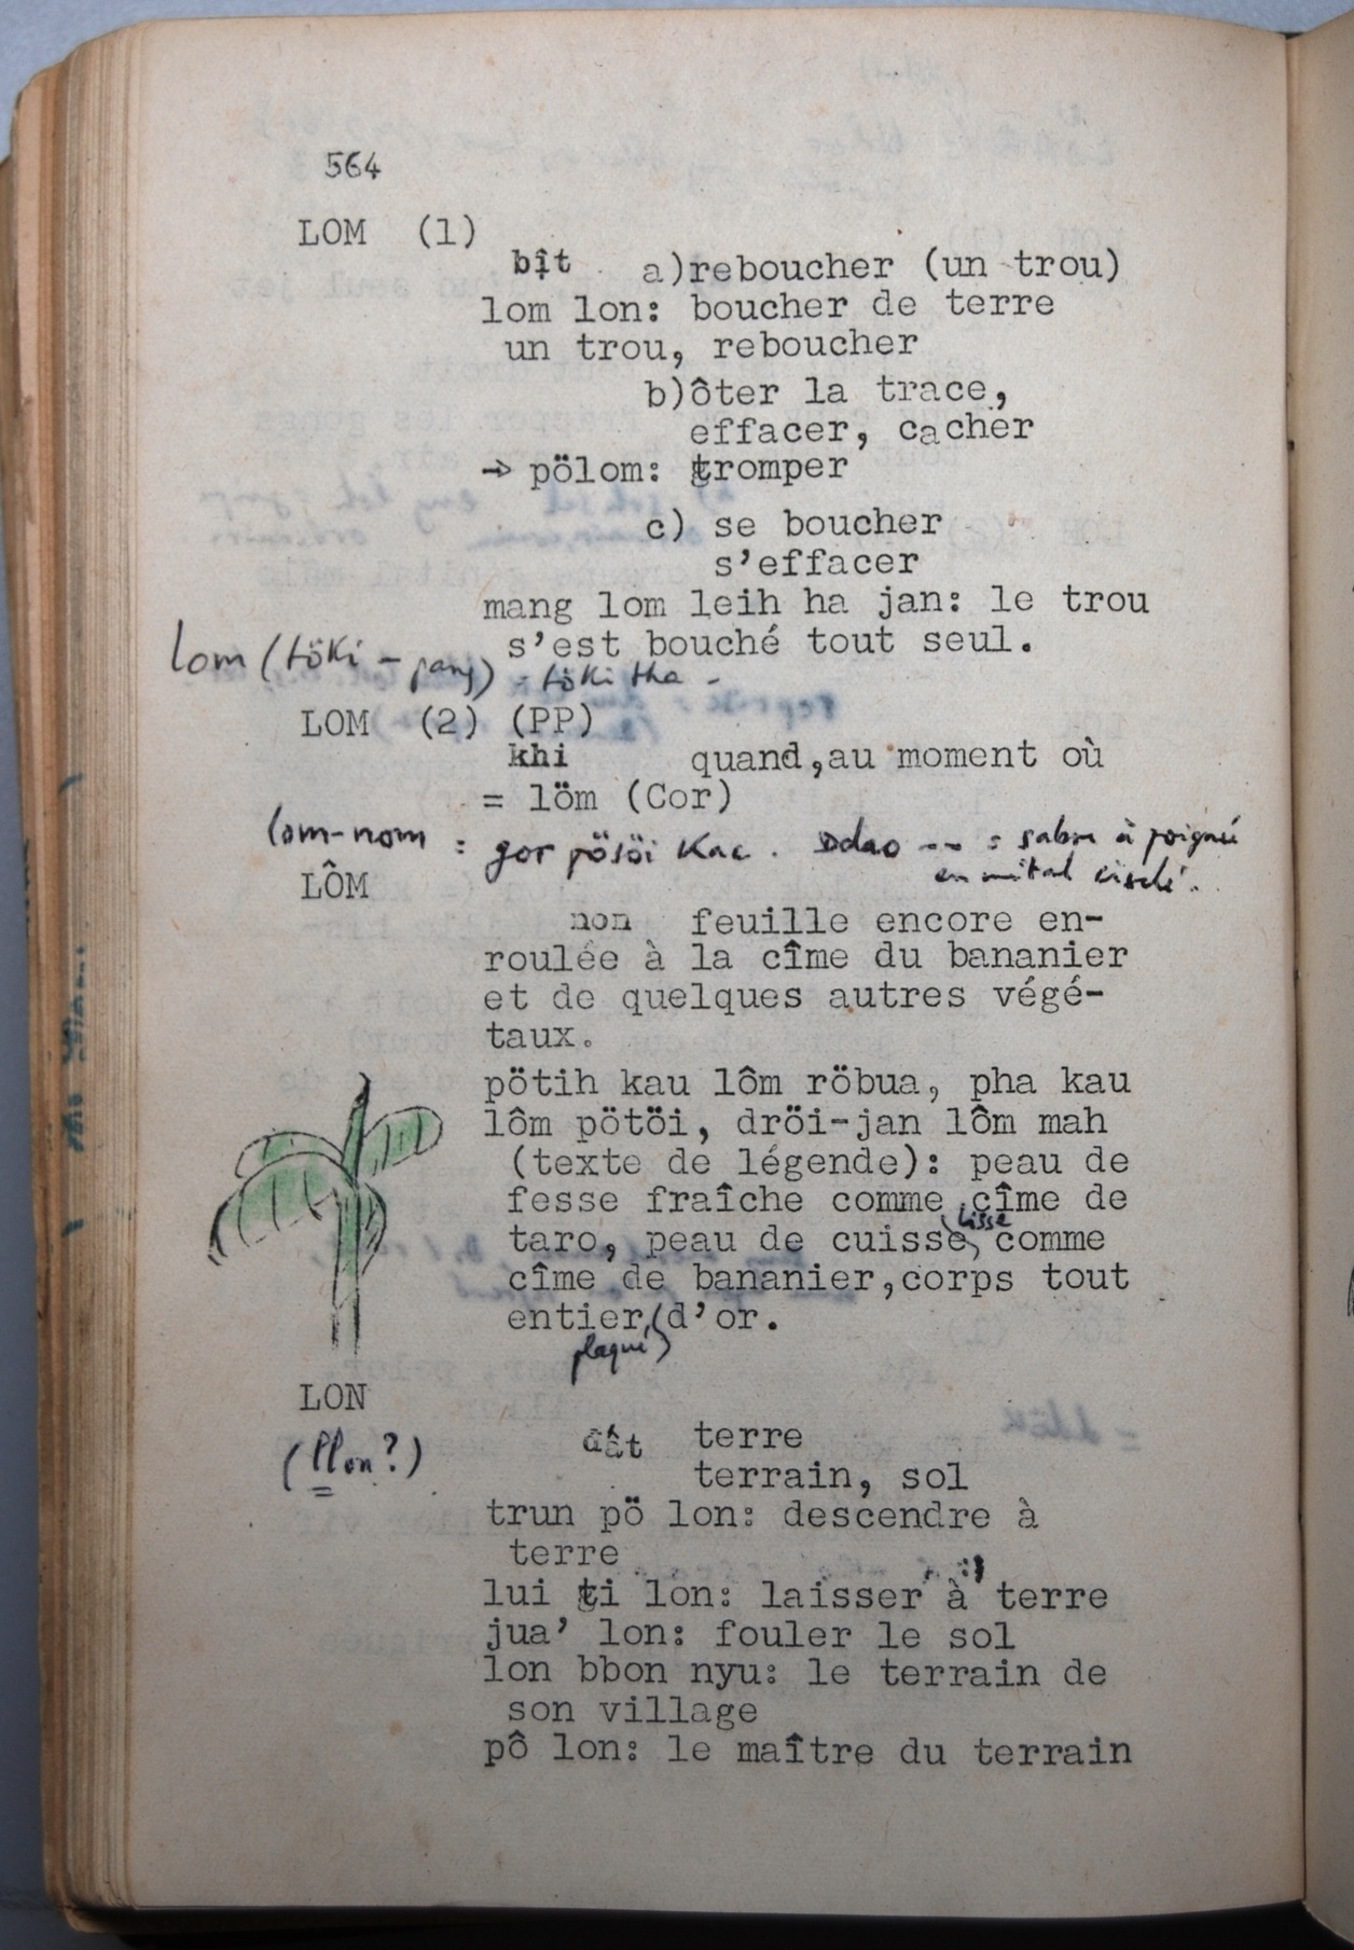 564
LOM (1)
bịt a)reboucher (un trou)
lom lon: boucher de terre
un trou, reboucher
b)ôter la trace,
effacer, cacher
→ pölom: tromper
c) se boucher
s'effacer
mang lom leih ha jan: le trou
s'est bouché tout seul.
lom (töki - jang) = töki tha -
LOM (2) (PP)
khi quand,au moment où
= löm (Cor)
lom-nom : gor pösöi Kac . Ddao -- : sabre à poignée
en métal ciselé.
LÔM
non feuille encore en-
roulée à la cîme du bananier
et de quelques autres végé-
taux.
pötih kau lôm röbua, pha kau
lôm pötöi, dröi-jan lôm mah
(texte de légende): peau de
fesse fraîche comme cîme de
lisse
taro, peau de cuisse, comme
cîme de bananier,corps tout
entier,(d'or.
plaqué)
LON
(llon?) đất terre
terrain, sol
trun pö lon: descendre à
terre
lui ti lon: laisser à terre
jua' lon: fouler le sol
lon bbon nyu: le terrain de
son village
pô lon: le maître du terrain